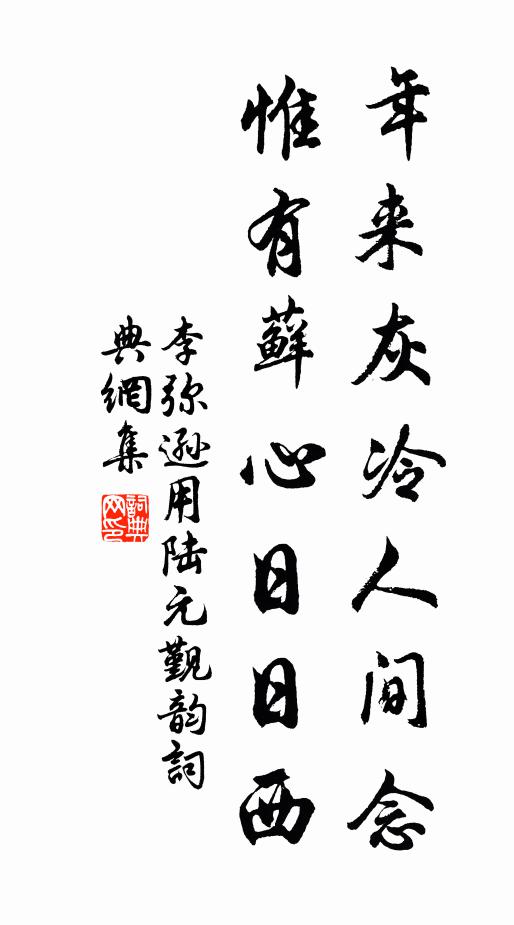 年来灰冷人间念
惟有蘚心日日西
李弥遜用陆元觐韵詞
典網集
詞典网印